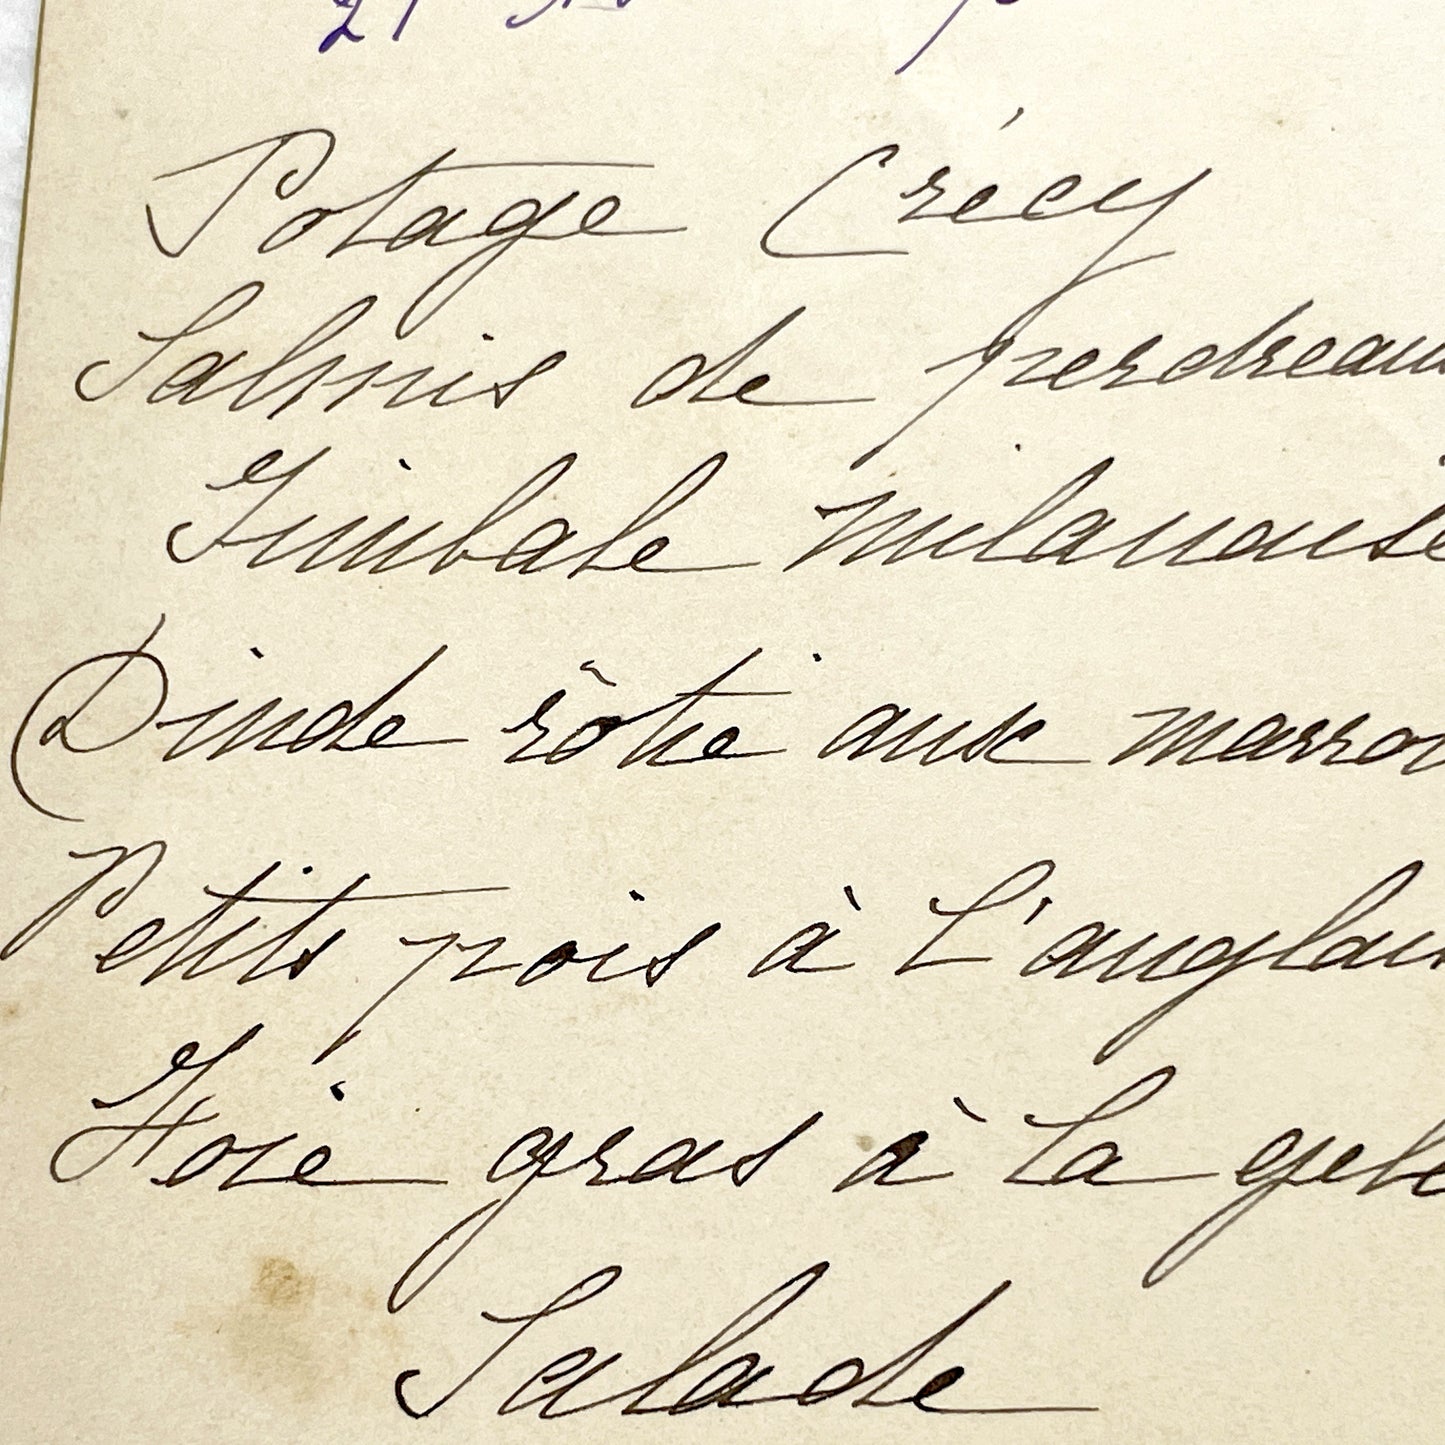 Potage Crécy
Salmis de perdreau
Timbale milanaise
Dinde rôtie aux marron
Petits pois à l'anglais
Foie gras à la gelé
Salade